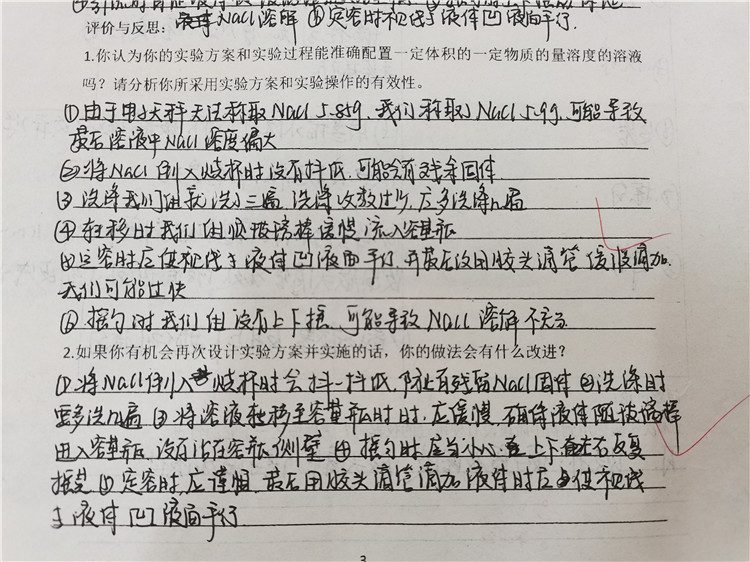 NaCl溶解 ⑥定容时视线与液体凹液面平行.
评价与反思:
1.你认为你的实验方案和实验过程能准确配置一定体积的一定物质的量溶度的溶液
吗?请分析你所采用实验方案和实验操作的有效性。
①由于电子天秤无法称取NaCl 5.85g,我们称取了NaCl 5.9g,可能导致
最后溶液中NaCl浓度偏大
②将NaCl倒入烧杯时没有抖纸,可能会有残余固体
③洗涤我们组就洗了三遍,洗涤次数过少,应多洗涤几遍
④转移时我们组顺玻璃棒缓慢流入容量瓶
⑤定容时应使视线与液体凹液面平行,并最后改用胶头滴管缓慢滴加.
我们可能过快
⑥摇匀时我们组没有上下摇,可能导致NaCl溶解不充分
2.如果你有机会再次设计实验方案并实施的话,你的做法会有什么改进?
①将NaCl倒入烧杯时会抖一抖纸,防止有残留NaCl固体 ②洗涤时
要多洗几遍 ③将溶液转移至容量瓶时时,应缓慢,确保液体随玻璃棒
进入容量瓶,没有沾在容瓶侧壁 ④摇匀时应当小心,上下左右反复
摇荡 ⑤定容时,应谨慎,最后用胶头滴管滴加液体时应使视线
与液体凹液面平行
3